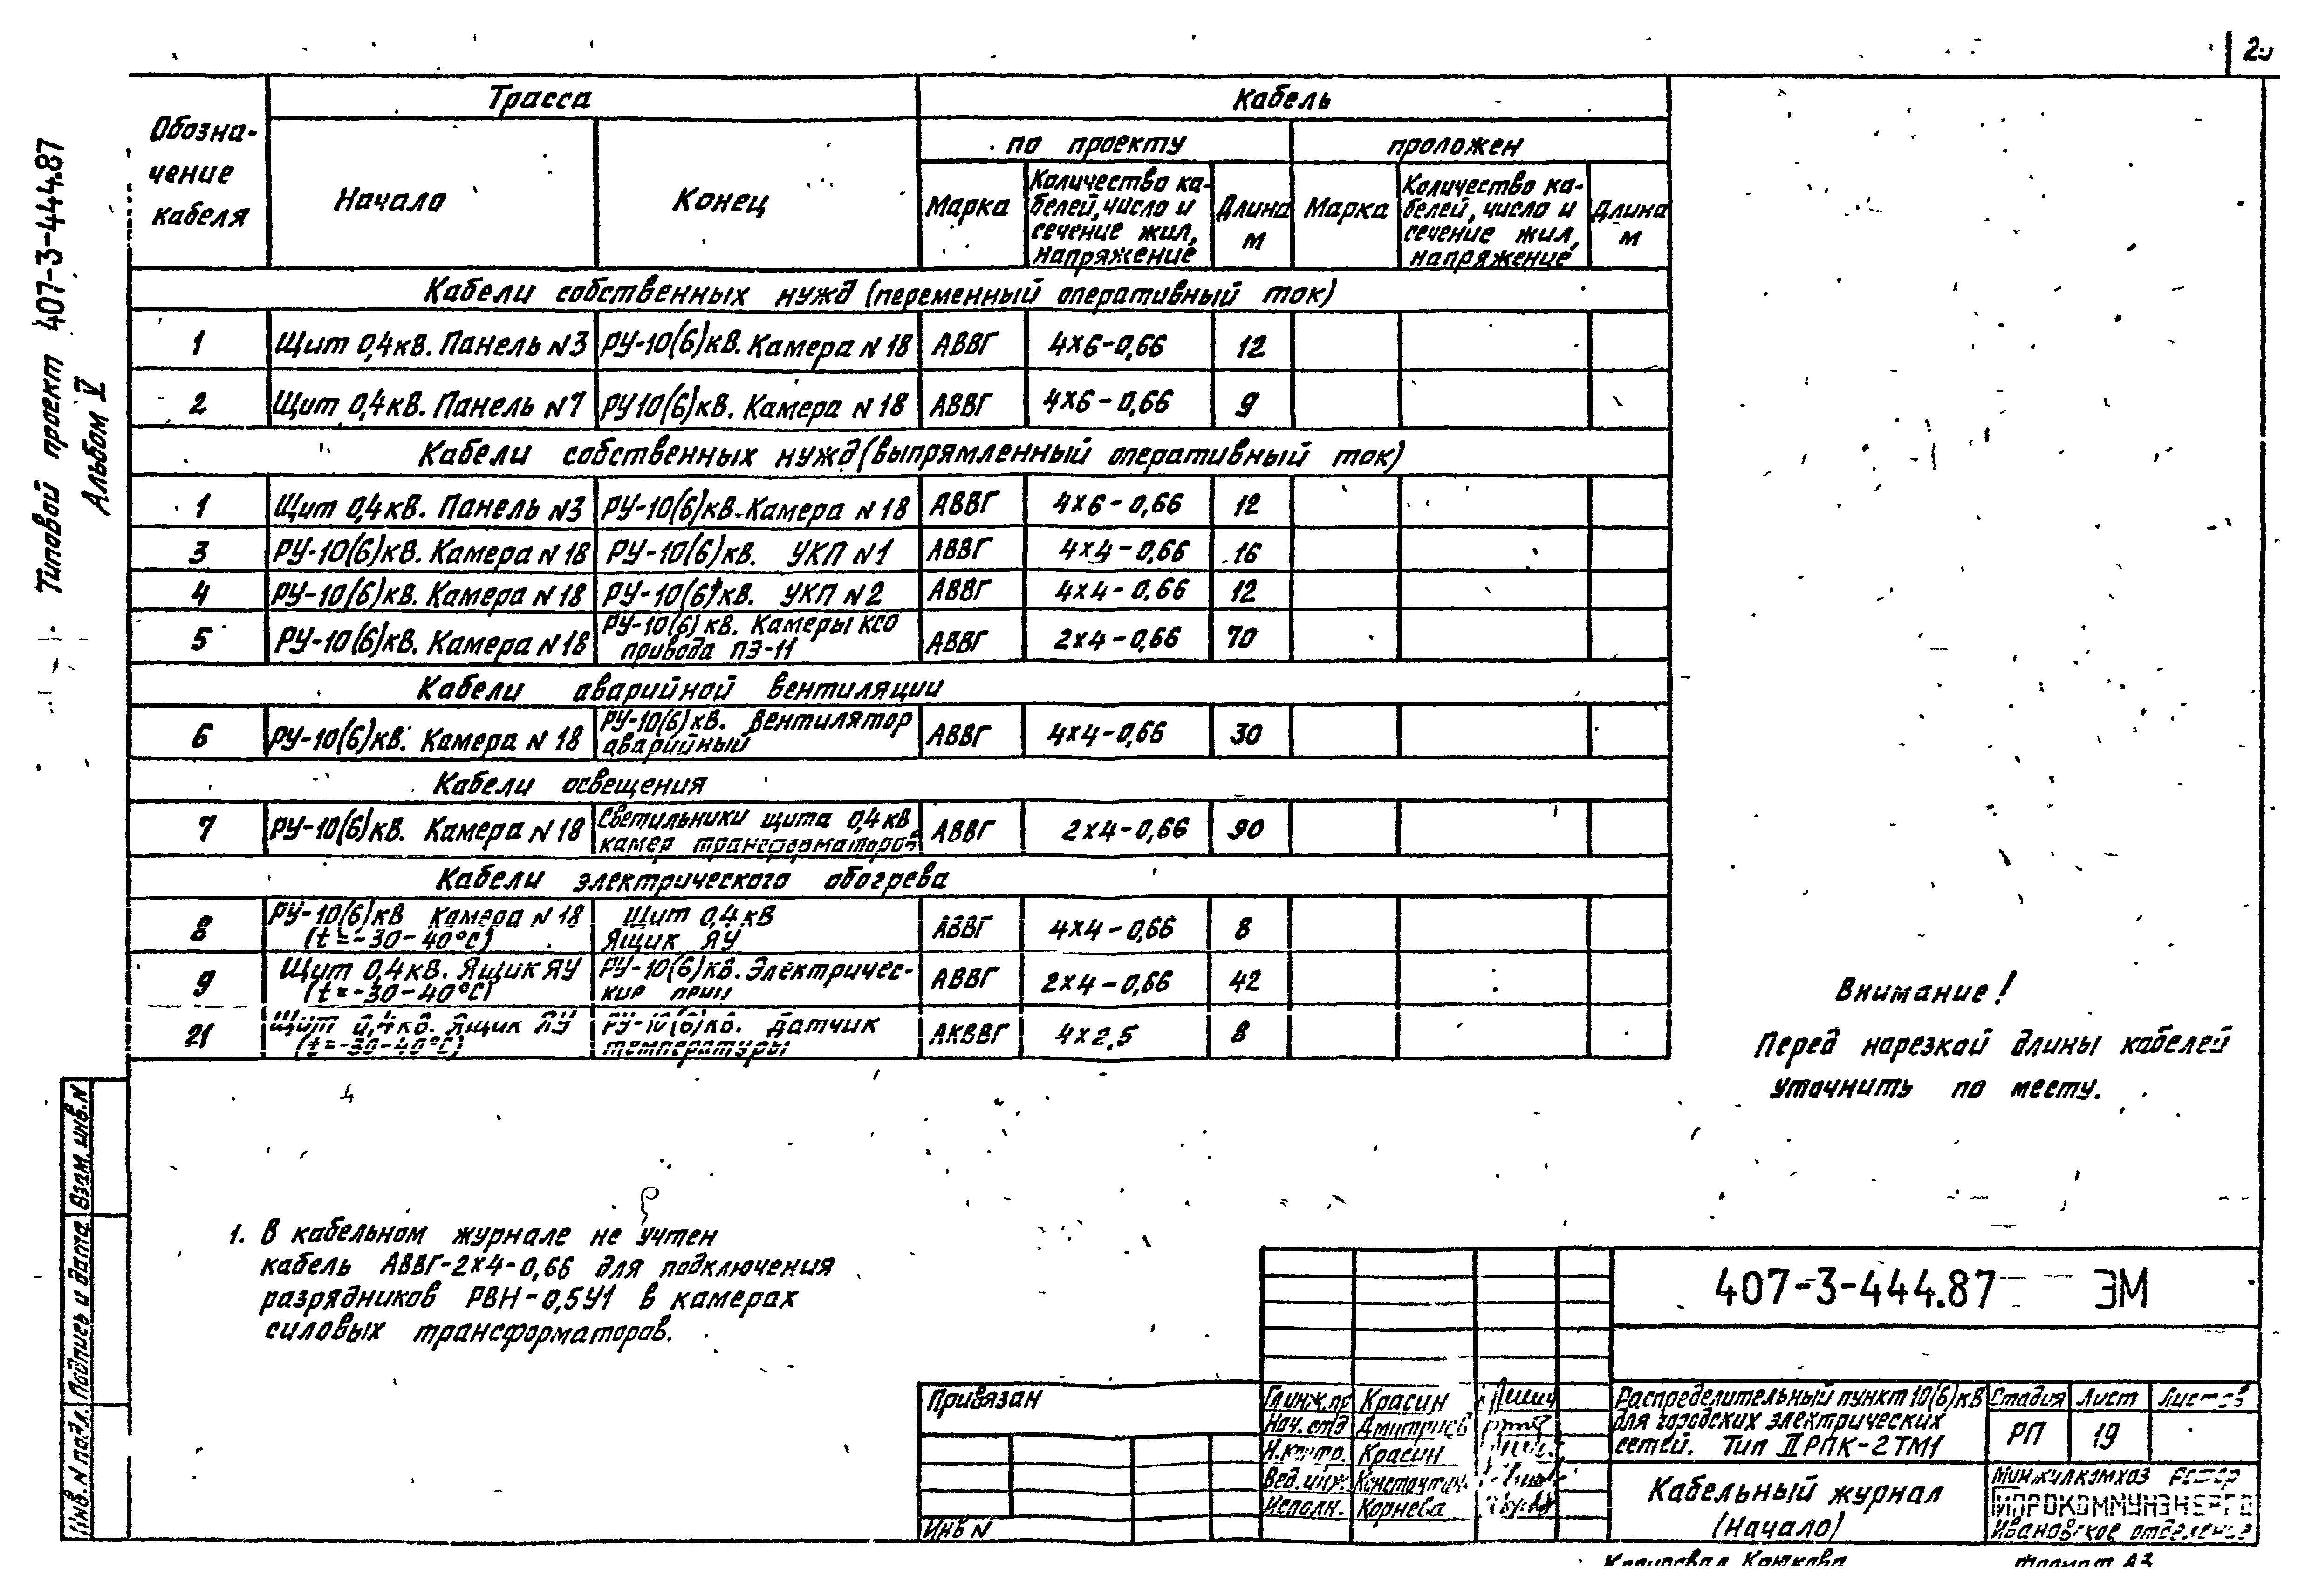 Типовой проект 407-3-444.87
Альбом V
Обозна-
чение
кабеля
Трасса
Кабель
Начало
Конец
по проекту
проложен
Марка
Количество ка-
белей, число и
сечение жил,
напряжение
Длина
м
Марка
Количество ка-
белей, число и
сечение жил,
напряжение
Длина
м
Кабели собственных нужд (переменный оперативный ток)
1 Щит 0,4кв. Панель N3 РУ-10(6)кв. Камера N 18 АВВГ 4х6-0,66 12
2 Щит 0,4кв. Панель N7 РУ10(6)кв. Камера N 18 АВВГ 4х6-0,66 9
Кабели собственных нужд (выпрямленный оперативный ток)
1 Щит 0,4кв. Панель N3 РУ-10(6)кв. Камера N 18 АВВГ 4х6-0,66 12
3 РУ-10(6)кв. Камера N 18 РУ-10(6)кв. УКП N1 АВВГ 4х4-0,66 16
4 РУ-10(6)кв. Камера N 18 РУ-10(6)кв. УКП N2 АВВГ 4х4-0,66 12
5 РУ-10(6)кв. Камера N 18 РУ-10(6)кв. Камеры КСО
привода ПЭ-11 АВВГ 2х4-0,66 70
Кабели аварийной вентиляции
6 РУ-10(6)кв. Камера N 18 РУ-10(6)кв. Вентилятор
аварийный АВВГ 4х4-0,66 30
Кабели освещения
7 РУ-10(6)кв. Камера N 18 Светильники щита 0,4кв
камер трансформаторов АВВГ 2х4-0,66 90
Кабели электрического обогрева
8 РУ-10(6)кв Камера N 18
(t=-30-40°С) Щит 0,4кв
Ящик ЯУ АВВГ 4х4-0,66 8
9 Щит 0,4кв. Ящик ЯУ
(t=-30-40°С) РУ-10(6)кв. Электричес-
кие печи АВВГ 2х4-0,66 42
21 Щит 0,4кв. Ящик ЯУ
(t=-30-40°С) РУ-10(6)кв. Датчик
температуры АКВВГ 4х2,5 8
Внимание!
Перед нарезкой длины кабелей
уточнить по месту.
1. В кабельном журнале не учтен
кабель АВВГ-2х4-0,66 для подключения
разрядников РВН-0,5У1 в камерах
силовых трансформаторов.
Взам. инв. N
Подпись и дата
Инв. N подл.
Привязан
Инв N
407-3-444.87 ЭМ
Гл.инж.пр Красин
Нач. отд Дмитриев
Н.контр. Красин
Вед. инж. Константин.
Исполн. Корнева
Распределительный пункт 10(6)кв
для городских электрических
сетей. Тип II РПК-2ТМ1
Стадия Лист Листов
РП 19
Кабельный журнал
(Начало)
Минжилкомхоз РСФСР
ГИПРОКОММУНЭНЕРГО
Ивановское отделение
Копировал Конкова
Формат А3